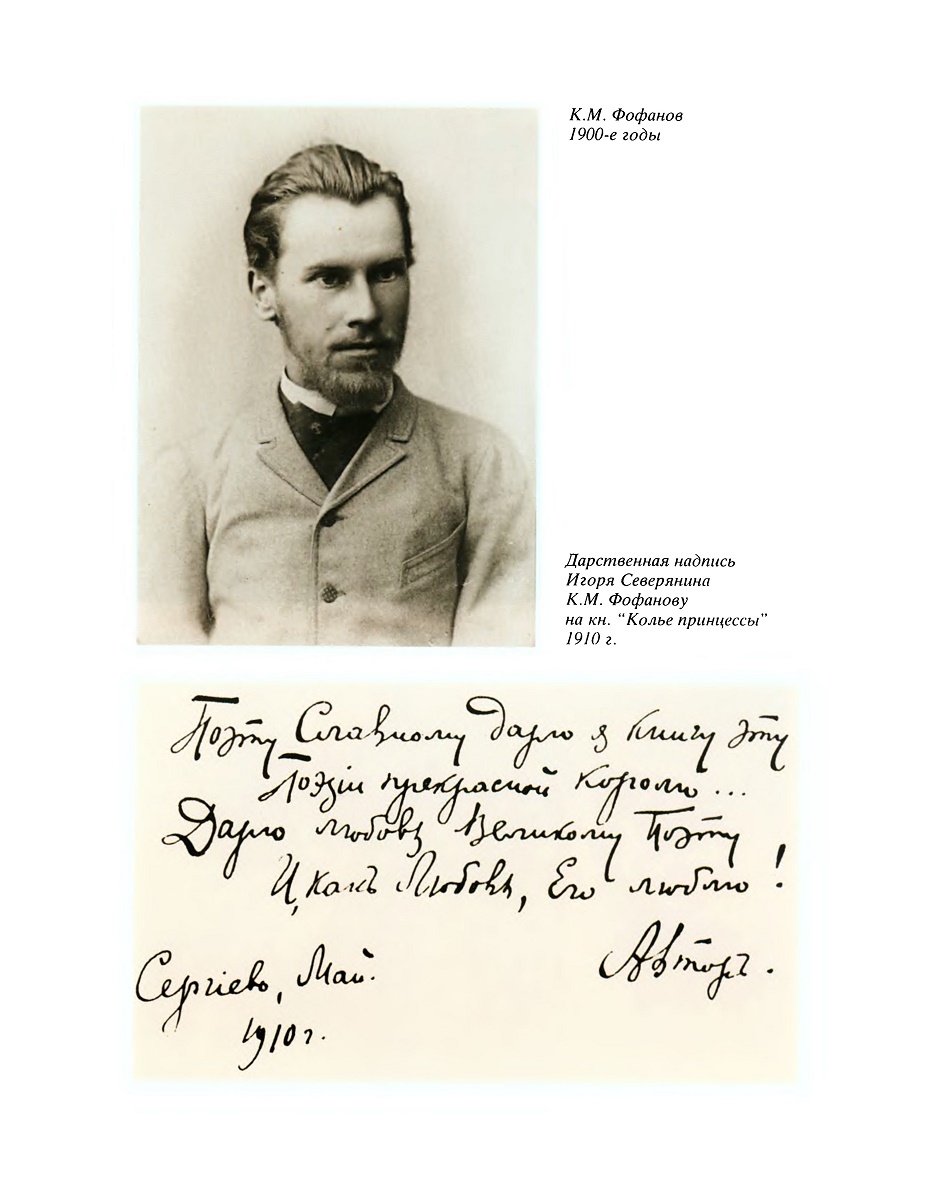 К.М. Фофанов
1900-е годы
Дарственная надпись
Игоря Северянина
К.М. Фофанову
на кн. “Колье принцессы”
1910 г.
Поэту Славному дарю я книгу эту
Поэзіи прекрасной королю...
Дарю любовь Великому Поэту
И, какъ Любовь, Его люблю!
Авторъ.
Сергіево, Май.
1910 г.